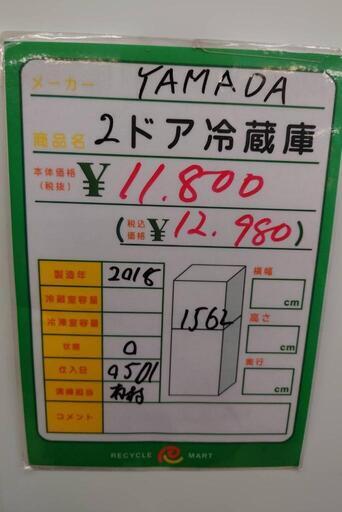 メーカー YAMADA
商品名 2ドア冷蔵庫
本体価格(税抜) ¥11.800
(税込価格 ¥12.980)
製造年 2018
冷蔵室容量
冷凍室容量
状態 O
仕入日 9501
清掃担当
コメント
156L
横幅
cm
高さ
cm
奥行
cm
RECYCLE MART